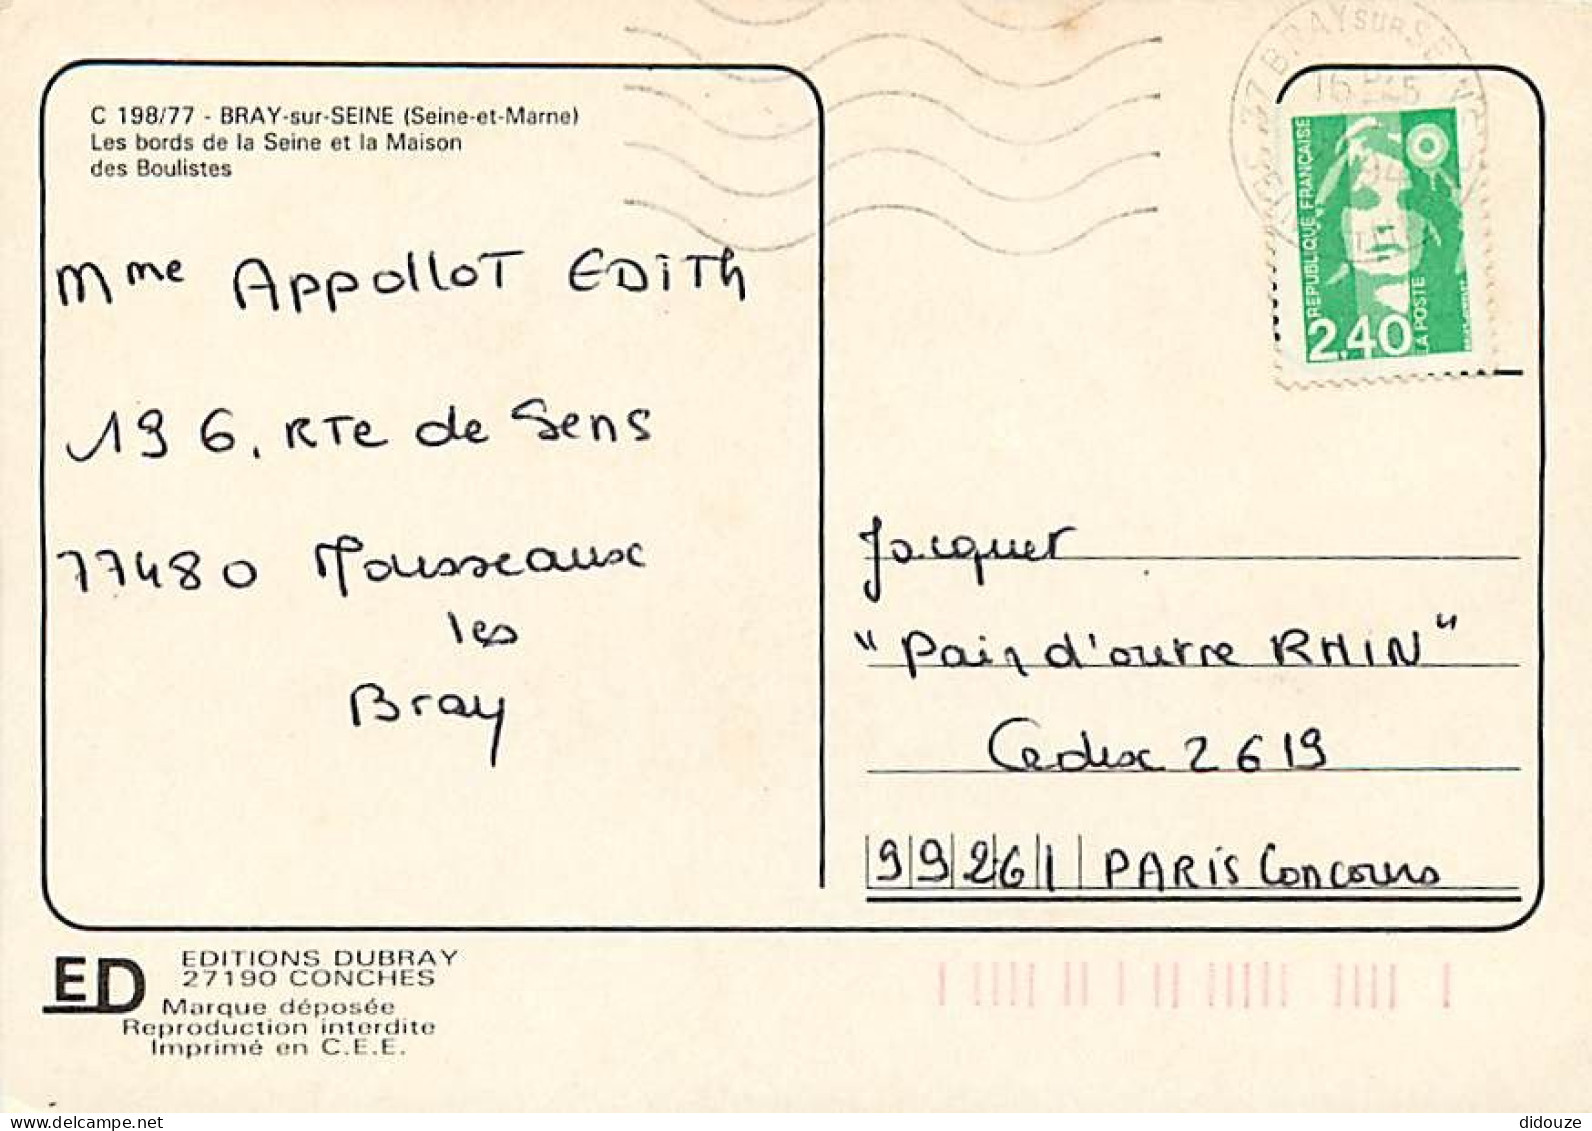 C 198/77 - BRAY-sur-SEINE (Seine-et-Marne)
Les bords de la Seine et la Maison
des Boulistes
Mme Appollot Edith
196, Rte de Sens
77480 Mousseaux
les
Bray
77 BRAY SUR SEINE
16 H 45
REPUBLIQUE FRANÇAISE
LA POSTE
2,40
Jacquet
"Pain d'outre RHIN"
Cedex 2619
99261 PARIS Concours
ED
EDITIONS DUBRAY
27190 CONCHES
Marque déposée
Reproduction interdite
Imprimé en C.E.E.
didouze